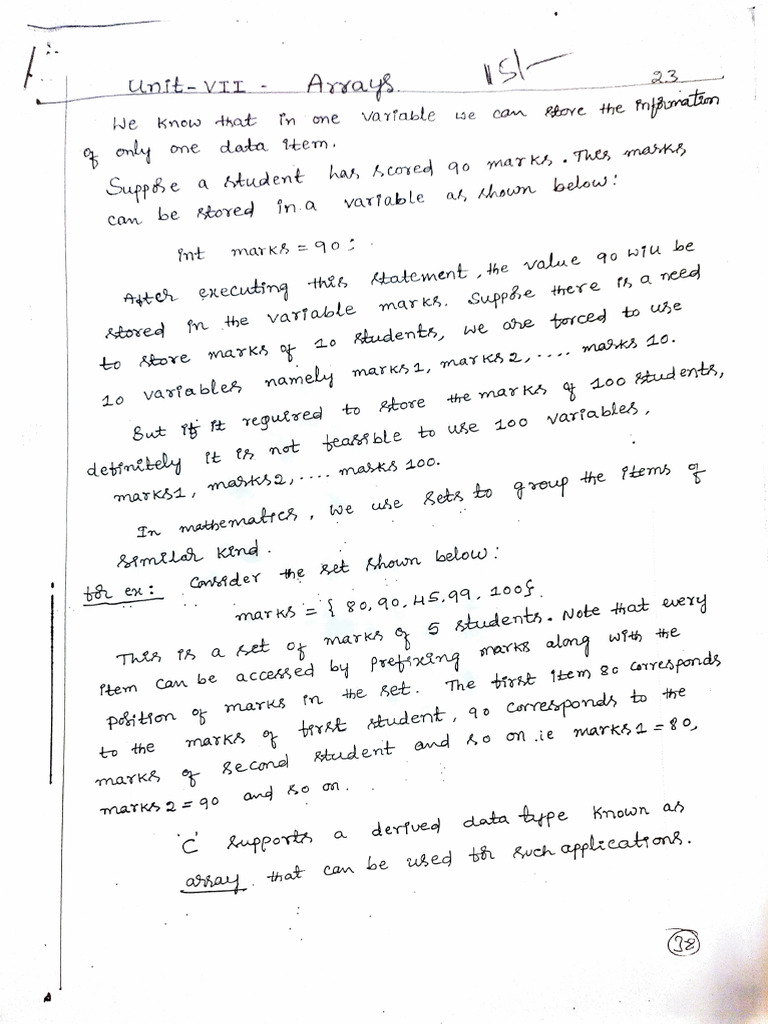 Unit-VII - Arrays. 115/- 23
We know that in one variable we can store the information
of only one data item.
Suppose a student has scored 90 marks. This marks
can be stored in a variable as shown below:
int marks = 90;
After executing this statement, the value 90 will be
stored in the variable marks. Suppose there is a need
to store marks of 10 students, we are forced to use
10 variables namely marks1, marks2, .... marks 10.
But if it required to store the marks of 100 students,
definitely it is not feasible to use 100 variables,
marks1, marks2, .... marks 100.
In mathematics, we use sets to group the items of
similar kind.
for ex: Consider the set shown below:
marks = { 80, 90, 45, 99, 100}.
This is a set of marks of 5 students. Note that every
item can be accessed by prefixing marks along with the
position of marks in the set. The first item 80 corresponds
to the marks of first student, 90 corresponds to the
marks of second student and so on .ie marks1 = 80,
marks2 = 90 and so on.
'C' supports a derived data type known as
array that can be used for such applications.
38